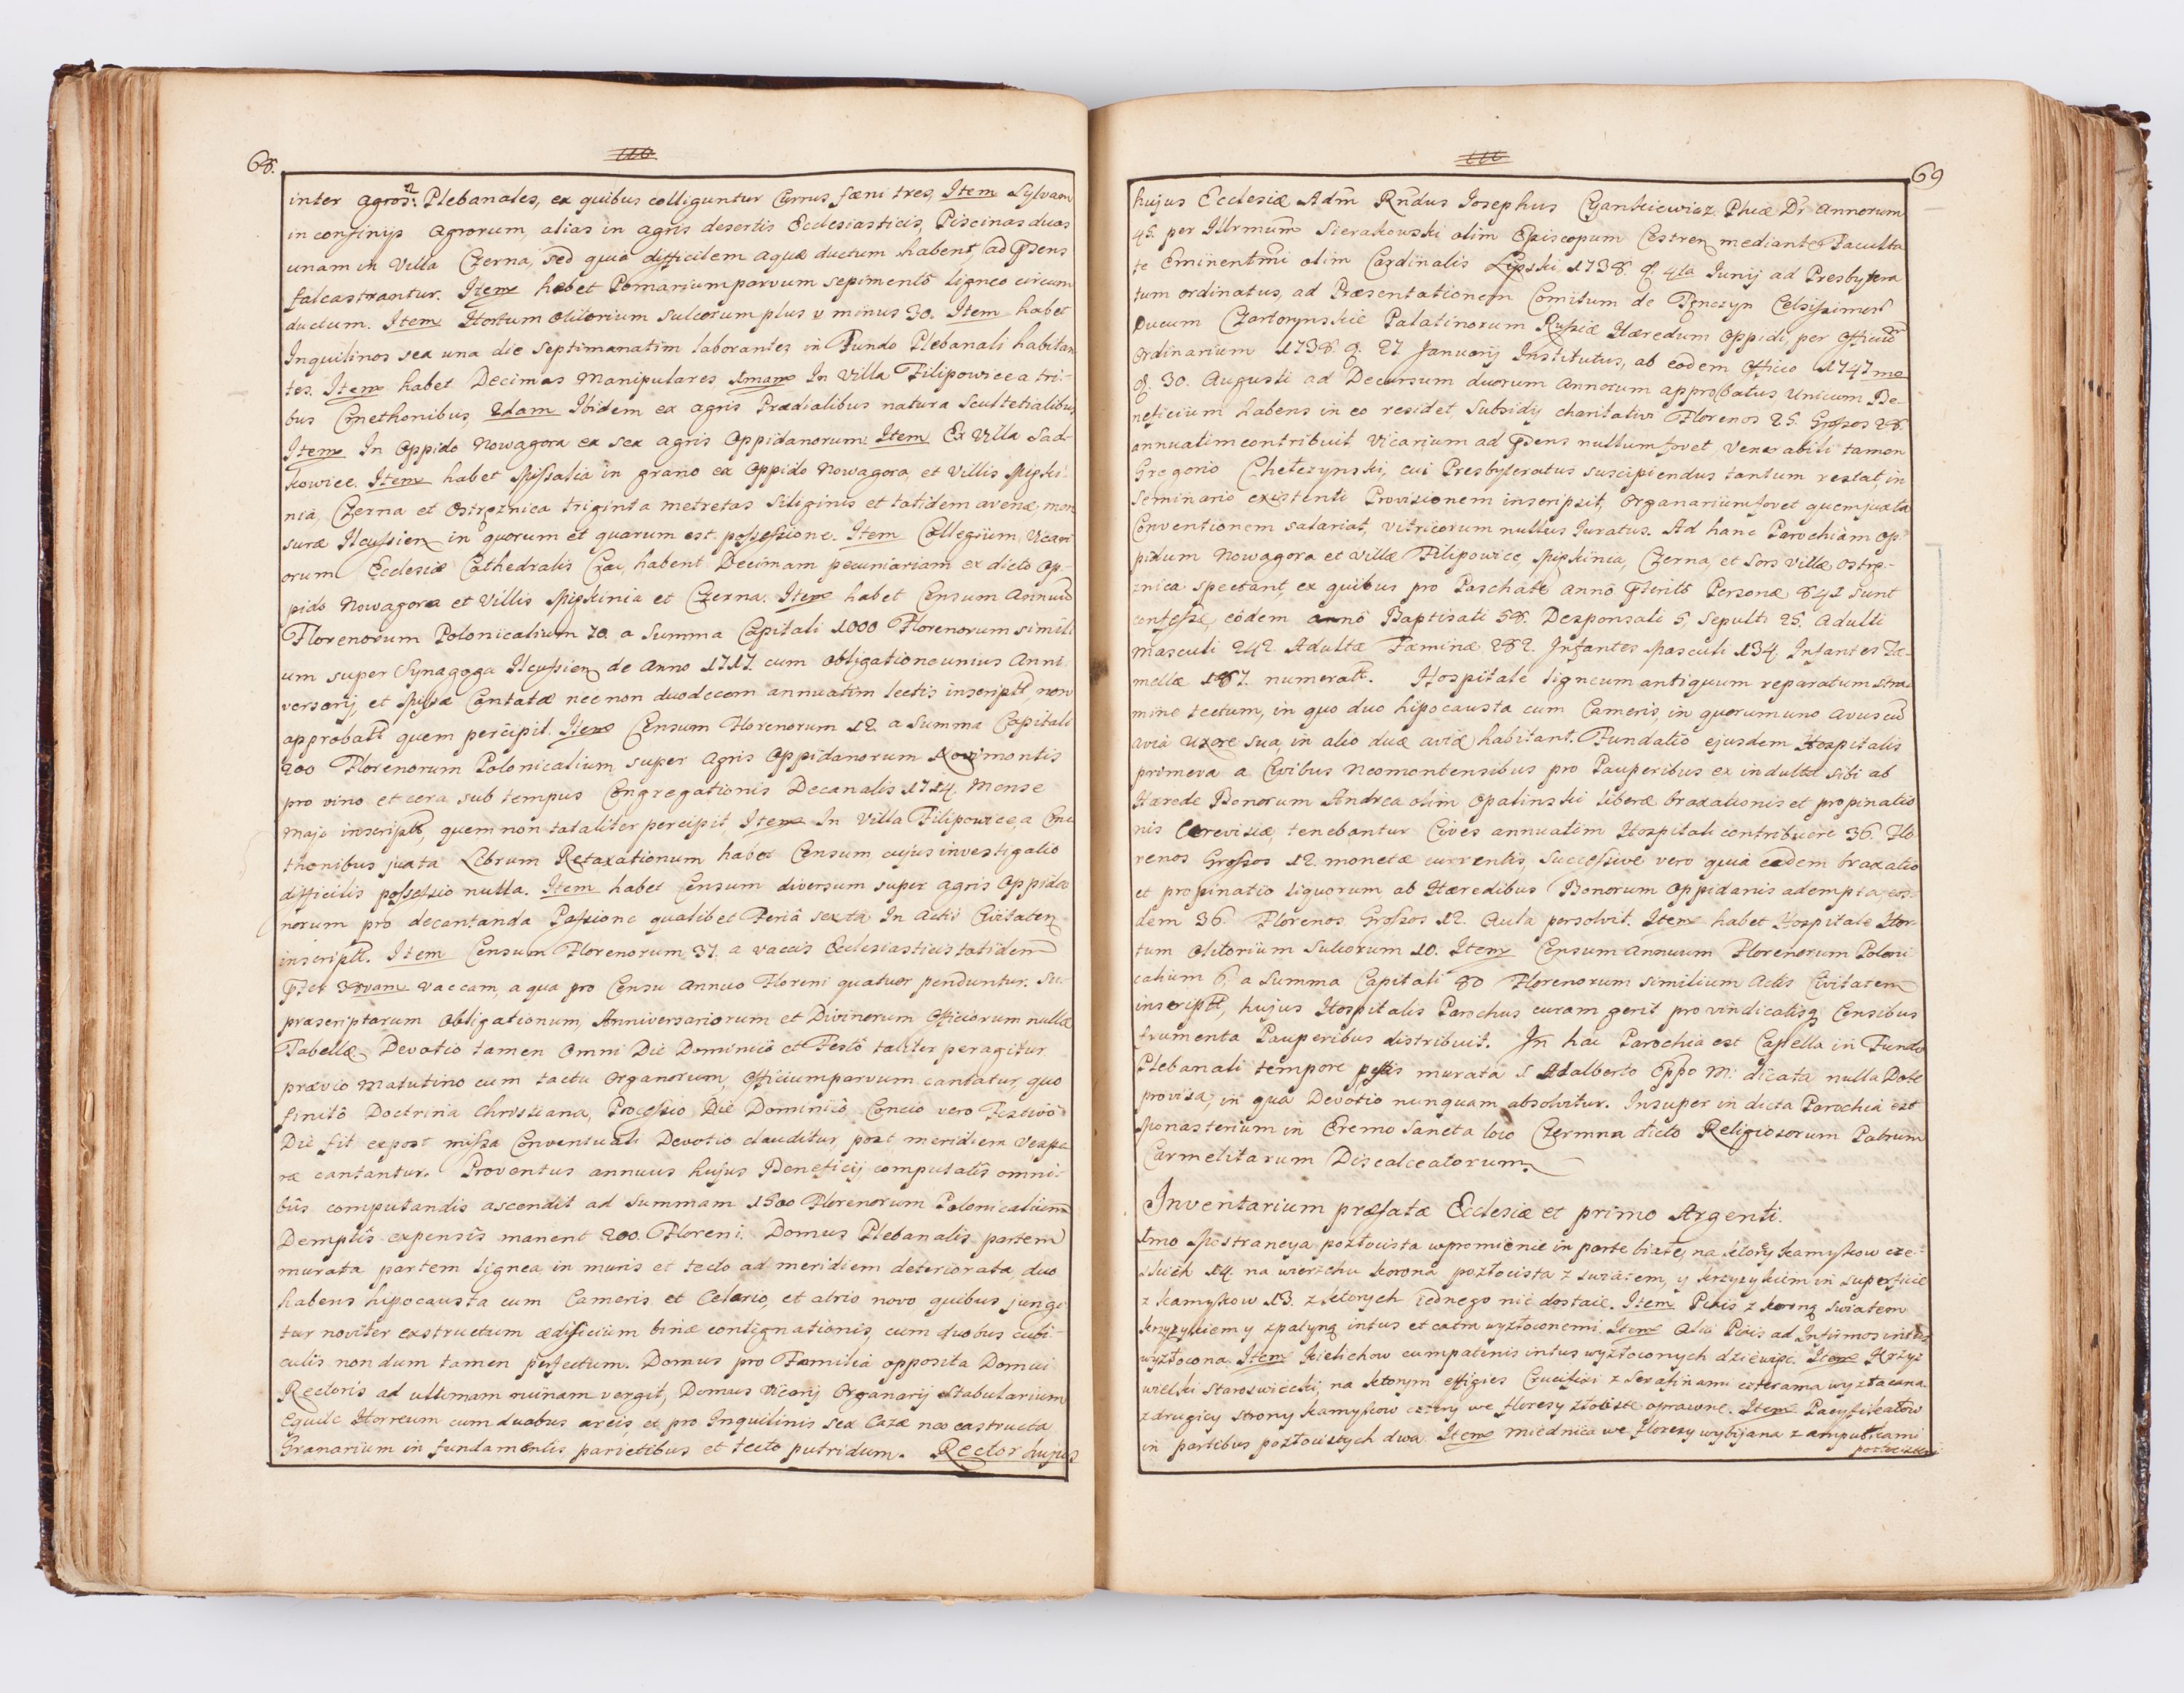 68.
116
inter agros Plebanales, ex quibus colliguntur Currus fæni tres, Item Sylvam
in confinijs agrorum, alias in agris desertis Ecclesiasticis, Piscinas duas
unam in Villa Czerna, sed quia difficilem aquæ ductum habent, ad Pñsens
falcastrantur. Item habet Pomarium parvum sepimentô ligneo circum
ductum. Item Hortum olitorium sulcorum plus v minus 30. Item habet
Inquilinos sex una die septimanatim laborantes in Fundo Plebanali habitan
tes. Item habet Decimas Manipulares 1mam In Villa Filipowice a tri-
bus Cmethonibus, 2dam Ibidem ex agris Prædialibus natura Scultetialibus,
Item In Oppido Nowagora ex sex agris Oppidanorum. Item Ex Villa Sad-
kowice. Item habet Missalia in grano ex Oppido Nowagora, et Villis Mięki-
nia, Czerna et Ostręznica triginta metretas Siliginis et totidem avenæ, men
suræ Ilcussien in quorum et quarum est possessione. Item Collegium Vicari
orum Ecclesiæ Cathedralis Crac, habent Decimam pecuniariam ex dicto Op-
pido Nowagora et Villis Miękinia et Czerna. Item habet Censum Annuũ
Florenorum Polonicalium 70. a Summa Capitali 1000 Florenorum simili
um super Synagoga Ilcussien de Anno 1717. cum obligatione unius Anni
versarij, et Missæ Cantatæ nec non duodecem annuatim lectis inscriptt, non
approbatt quem percipit. Item Censum Florenorum 12. a Summa Capitali
200 Florenorum Polonicalium super agris Oppidanorum Novimontis
pro vino et cera sub tempus Congregationis Decanalis 1714. Mense
Majo inscriptt, quem non totaliter percipit, Item In Villa Filipowice, a Cme
thonibus juxta Librum Retaxationum habet Censum cujus investigatio
difficilis possessio nulla. Item habet Censum diversum super agris Oppida
norum pro decantanda Passione qualibet Feriâ sextâ In Actis Civitaten
inscriptt. Item Censum Florenorum 37. a vaccis Ecclesiasticis totidem
Pter 38vam Vaccam, a qua pro Censu annuo Floreni quatuor penduntur. Su-
præscriptarum Obligationum, Anniversariorum et Divinorum Officiorum nullæ
Tabellæ, Devotio tamen Omni Die Dominicô et Festô taliter peragitur
prævio Matutino cum tactu Organorum, Officium parvum cantatur, quo
finitô Doctrina Christiana, Processio Die Dominicô, Concio vero Festivô
Die fit expost missa Conventuali Devotio clauditur, post meridiem Vespe
ræ cantantur. Proventus annuus hujus Beneficij computatis omni-
bus computandis ascendit ad Summam 1500 Florenorum Polonicalium
Demptîs expensîs manent 200. Floreni. Domus Plebanalis partem
murata partem lignea in muris et tecto ad meridiem deteriorata, duo
habens hipocausta cum Cameris et Celario, et atrio novo quibus jungi
tur noviter exstructum ædificium binæ contignationis, cum duobus cubi-
culis nondum tamen perfectum. Domus pro Familia opposita Domui
Rectoris ad ultimam ruinam vergit, Domus Vicarij Organarij Stabularium
Equile Horreum cum duabus areis, ex pro Inquilinis sex Casæ neo exstructa
Granarium in fundamentis parietibus et tecto putridum. Rector hujus
69
116
hujus Ecclesiæ Adm̃ Rñdus Josephus Cyankiewicz Phiæ Dr Annorum
45. per Illrmum Sierakowski olim Episcopum Cestren mediante Faculta
te Eminentm̃i olim Cardinalis Lipski 1738. d. 4ta Junij ad Presbytera
tum ordinatus, ad Præsentationem Comitum de Tenczyn Celsissimor̃
Ducum Czartoryskie Palatinorum Russiæ Hæredum Oppidi, per Officiũ
Ordinarium 1738. d. 27 Januarij Institutus, ab eodem Officio 1747mo
d. 30. Augusti ad Decursum duorum Annorum approbatus Unicum Be-
neficium habens in eo residet, Subsidij charitativi Florenos 25. Grossos 28.
annuatim contribuit Vicarium ad Pñsens nullum fovet, Venerabili tamen
Gregorio Chełczynski, cui Presbyteratus suscipiendus tantum restat, in
Seminario existenti Provisionem inscripsit, Organarium fovet quem juxta
Conventionem salariat, Vitricorum nullus Juratus. Ad hanc Parochiam Op-
pidum Nowagora et Villæ Filipowice, Miękinia, Czerna, et Sors Villæ Ostrę-
znica spectant, ex quibus pro Paschate Annô Pterito Personæ 841 sunt
confessæ, eôdem annô Baptisati 58. Desponsati 5, Sepulti 25. Adulti
Masculi 242. Adultæ Fæminæ 282. Infantes Masculi 134. Infantes Fæ-
mellæ 187. numeratt. Hospitale ligneum antiquum reparatum stra-
mine tectum, in quo duo hipocausta cum Cameris, in quorum uno Avus cũ
Avia Uxore sua, in alio duæ aviæ habitant. Fundatio ejusdem Hospitalis
primeva a Civibus Neomontensibus pro Pauperibus ex indultu sibi ab
Hærede Bonorum Andrea olim Opalinski liberæ braxationis et propinatio
nis Cerevisiæ, tenebantur Cives annuatim Hospitali contribuere 36. Flo
renos Grossos 12. monetæ currentis, Successive vero quia eadem braxatio
et propinatio liquorum ab Hæredibus Bonorum Oppidanis adempta, eos-
dem 36. Florenos Grossos 12. Aula persolvit. Item habet Hospitale Hor-
tum Olitorium Sulcorum 10. Item Censum Annuum Florenorum Poloni
calium 6. a Summa Capitali 80 Florenorum similium Actis Civitaten
inscriptt, hujus Hospitalis Parochus curam gerit pro vindicatisq Censibus
frumenta Pauperibus distribuit. In hac Parochia est Capella in Fundo
Plebanali tempore pestis murata S Adalberto Eppo M: dicata nulla Dote
provisa, in qua Devotio nunquam absolvitur. Insuper in dicta Parochia est
Monasterium in Eremo Sancta loco Czermna dicto Religiosorum Patrum
Carmelitarum Discalceatorum.
Inventarium præfatæ Ecclesiæ et primo Argenti.
1mo Monstrancya pozłocista w promienie in parte białej, na ktorey kamykow cze-
skich 14 na wierzchu korona pozłocista z swiatem, y krzyzykiem in superficie
z kamykow 13. z ktorych iednego nie dostaie. Item Puszka z koroną swiatem
krzyzykiem y z patyną intus et extra wyzłoconemi. Item Alia Pixis ad Infirmos intus
wyzłocona. Item Kielichow cum patenis intus wyzłoconych dziewięc. Item Krzyz
wielki staroswiecki, na ktorym effigies Crucifixi z Serafinami czterema wyzłacana.
z drugiey strony kamykow cztery we floresy złociste oprawne. Item Pacyfikałow
in partibus pozłocistych dwa. Item Miednica we floresy wybijana z ampułkami